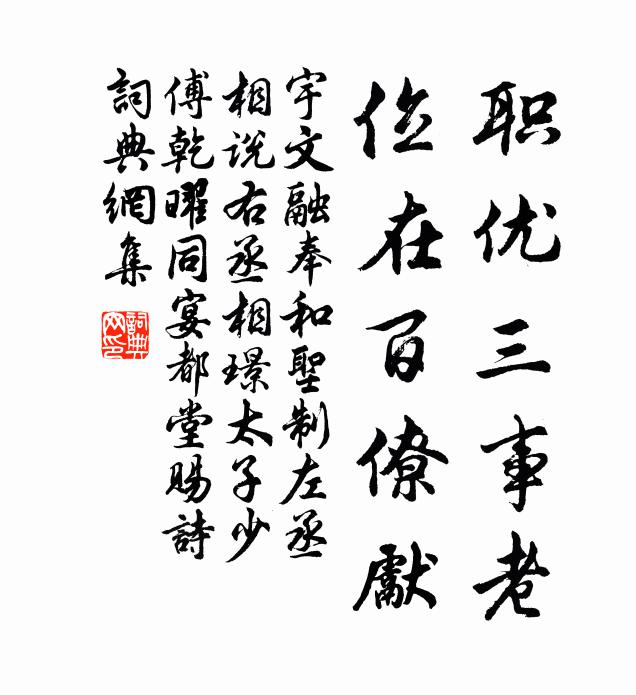 职优三事老
位在百僚献
宇文融奉和聖制左丞
相说右丞相璟太子少
傅乾曜同宴都堂賜詩
詞典網集
詞典
网印